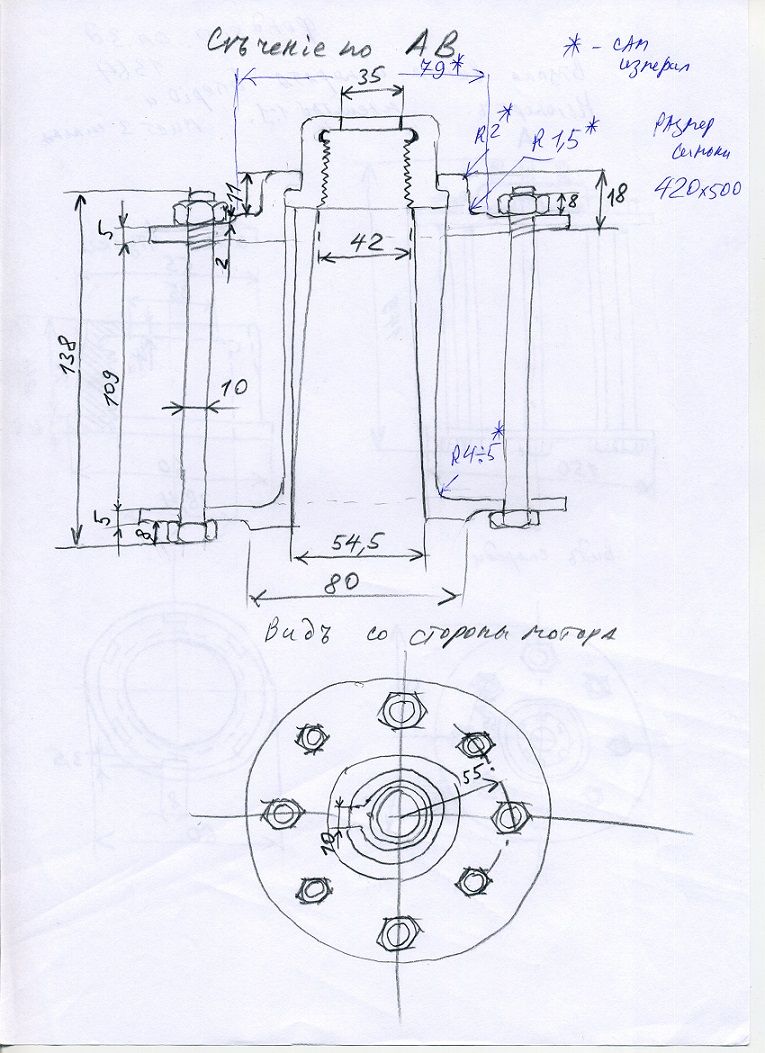 Съченіе по АВ
* - САМ
измерял
79*
35
R2*
R 1,5*
Размер
420x500
11
8
18
5
2
42
138
109
10
R4÷5*
5
8
54,5
80
Видъ со стороны мотора
55
10